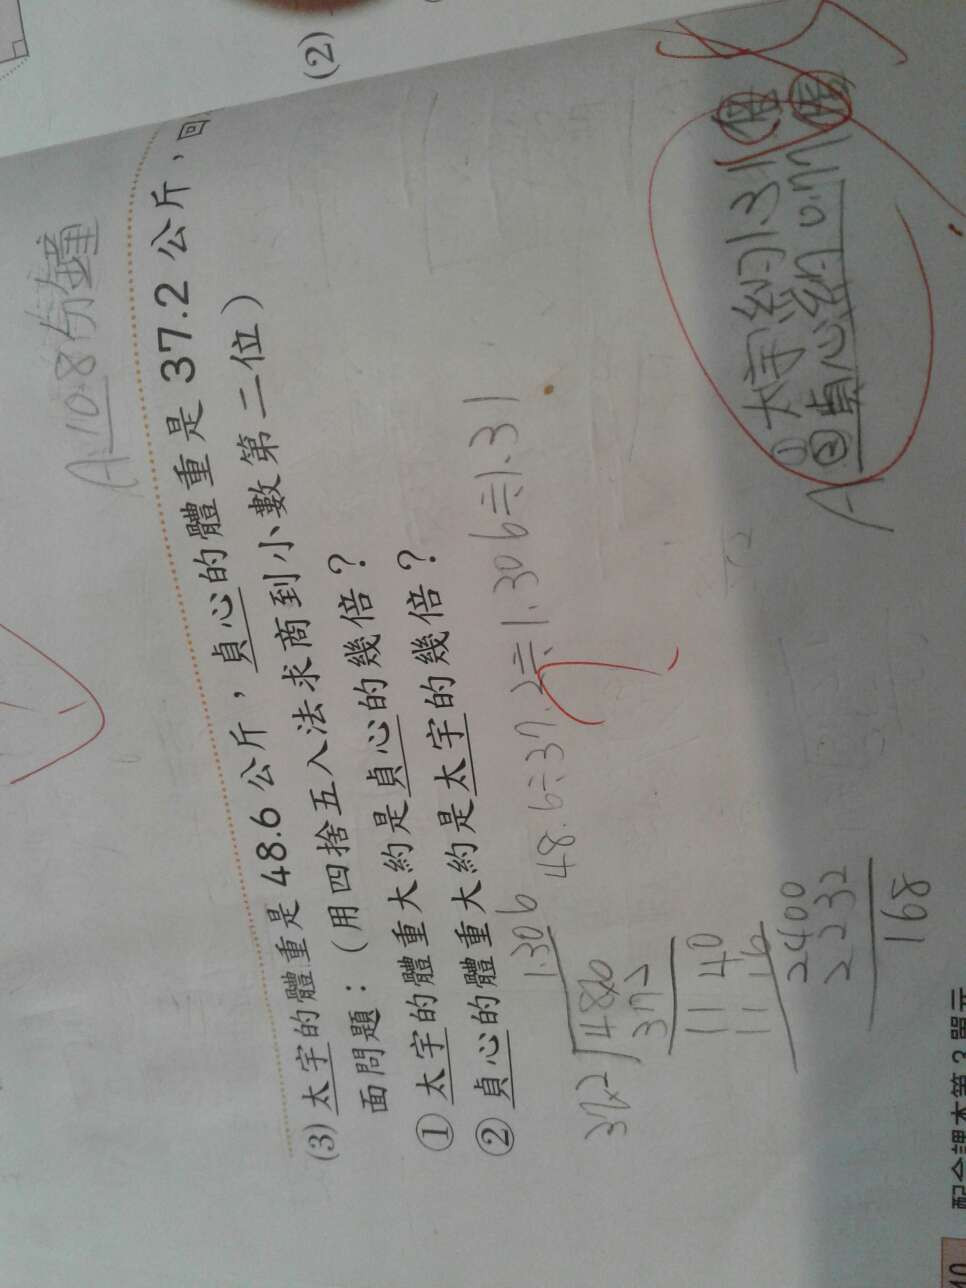 (2)
A 10.8分鐘
(3) 太宇的體重是 48.6 公斤，貞心的體重是 37.2 公斤，回
面問題：(用四捨五入法求商到小數第二位)
① 太宇的體重大約是貞心的幾倍？
② 貞心的體重大約是太宇的幾倍？
48.6÷37.2≒1.306≒1.31
1.306
37.2
486
372
1140
1116
2400
2232
168
A ① 太宇約1.31倍
② 貞心約0.77倍
配合課本第3單元